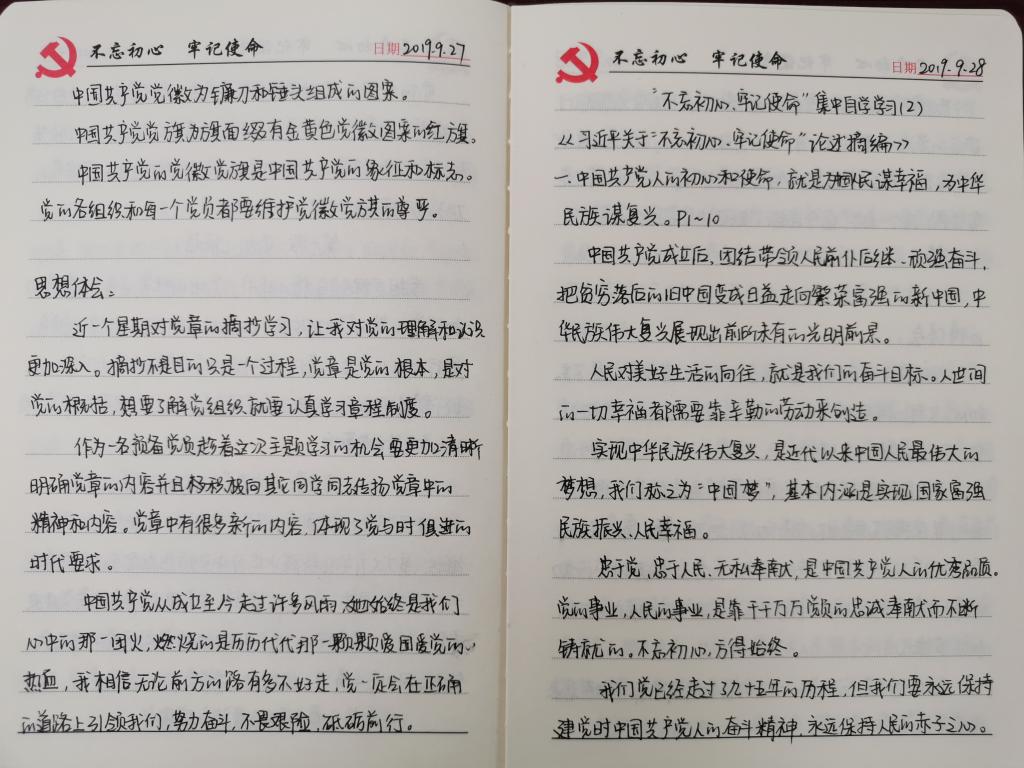 不忘初心 牢记使命 日期2019.9.27
中国共产党党徽为镰刀和锤头组成的图案。
中国共产党党旗为旗面缀有金黄色党徽图案的红旗。
中国共产党的党徽党旗是中国共产党的象征和标志。
党的各组织和每一个党员都要维护党徽党旗的尊严。
思想体会：
近一个星期对党章的摘抄学习，让我对党的理解和认识
更加深入。摘抄不是目的只是一个过程，党章是党的根本，是对
党的概括，想要了解党组织就要认真学习章程制度。
作为一名预备党员趁着这次主题学习的机会要更加清晰
明确党章的内容并且积极向其它同学同志传扬党章中的
精神和内容。党章中有很多新的内容，体现了党与时俱进的
时代要求。
中国共产党从成立至今走过许多风雨，她始终是我们
心中的那一团火，燃烧的是历历代代那一颗颗爱国爱党的心
热血，我相信无论前方的路有多不好走，党一定会在正确
的道路上引领我们，努力奋斗，不畏艰险，砥砺前行。
不忘初心 牢记使命 日期2019.9.28
“不忘初心、牢记使命”集中自学学习(2)
《习近平关于“不忘初心、牢记使命”论述摘编》
一、中国共产党人的初心和使命，就是为中国人民谋幸福，为中华
民族谋复兴。P1~10
中国共产党成立后，团结带领人民前仆后继、顽强奋斗，
把贫穷落后的旧中国变成日益走向繁荣富强的新中国，中
华民族伟大复兴展现出前所未有的光明前景。
人民对美好生活的向往，就是我们的奋斗目标。人世间
的一切幸福都需要靠辛勤的劳动来创造。
实现中华民族伟大复兴，是近代以来中国人民最伟大的
梦想，我们称之为“中国梦”，基本内涵是实现国家富强
民族振兴、人民幸福。
忠于党、忠于人民、无私奉献，是中国共产党人的优秀品质。
党的事业，人民的事业，是靠千千万万党员的忠诚奉献而不断
铸就的。不忘初心，方得始终。
我们党已经走过了九十五年的历程，但我们要永远保持
建党时中国共产党人的奋斗精神，永远保持人民的赤子之心。